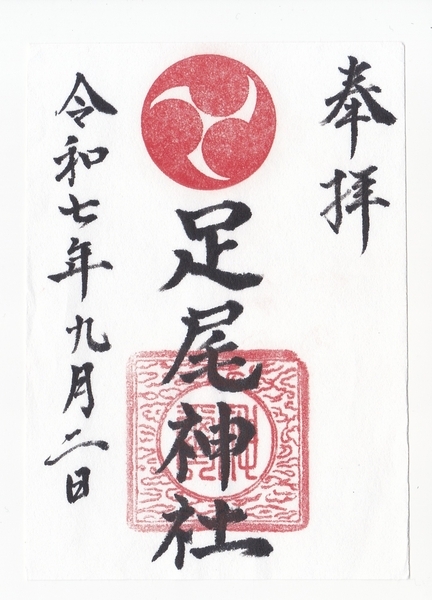 奉拝
足尾神社
令和七年九月二日